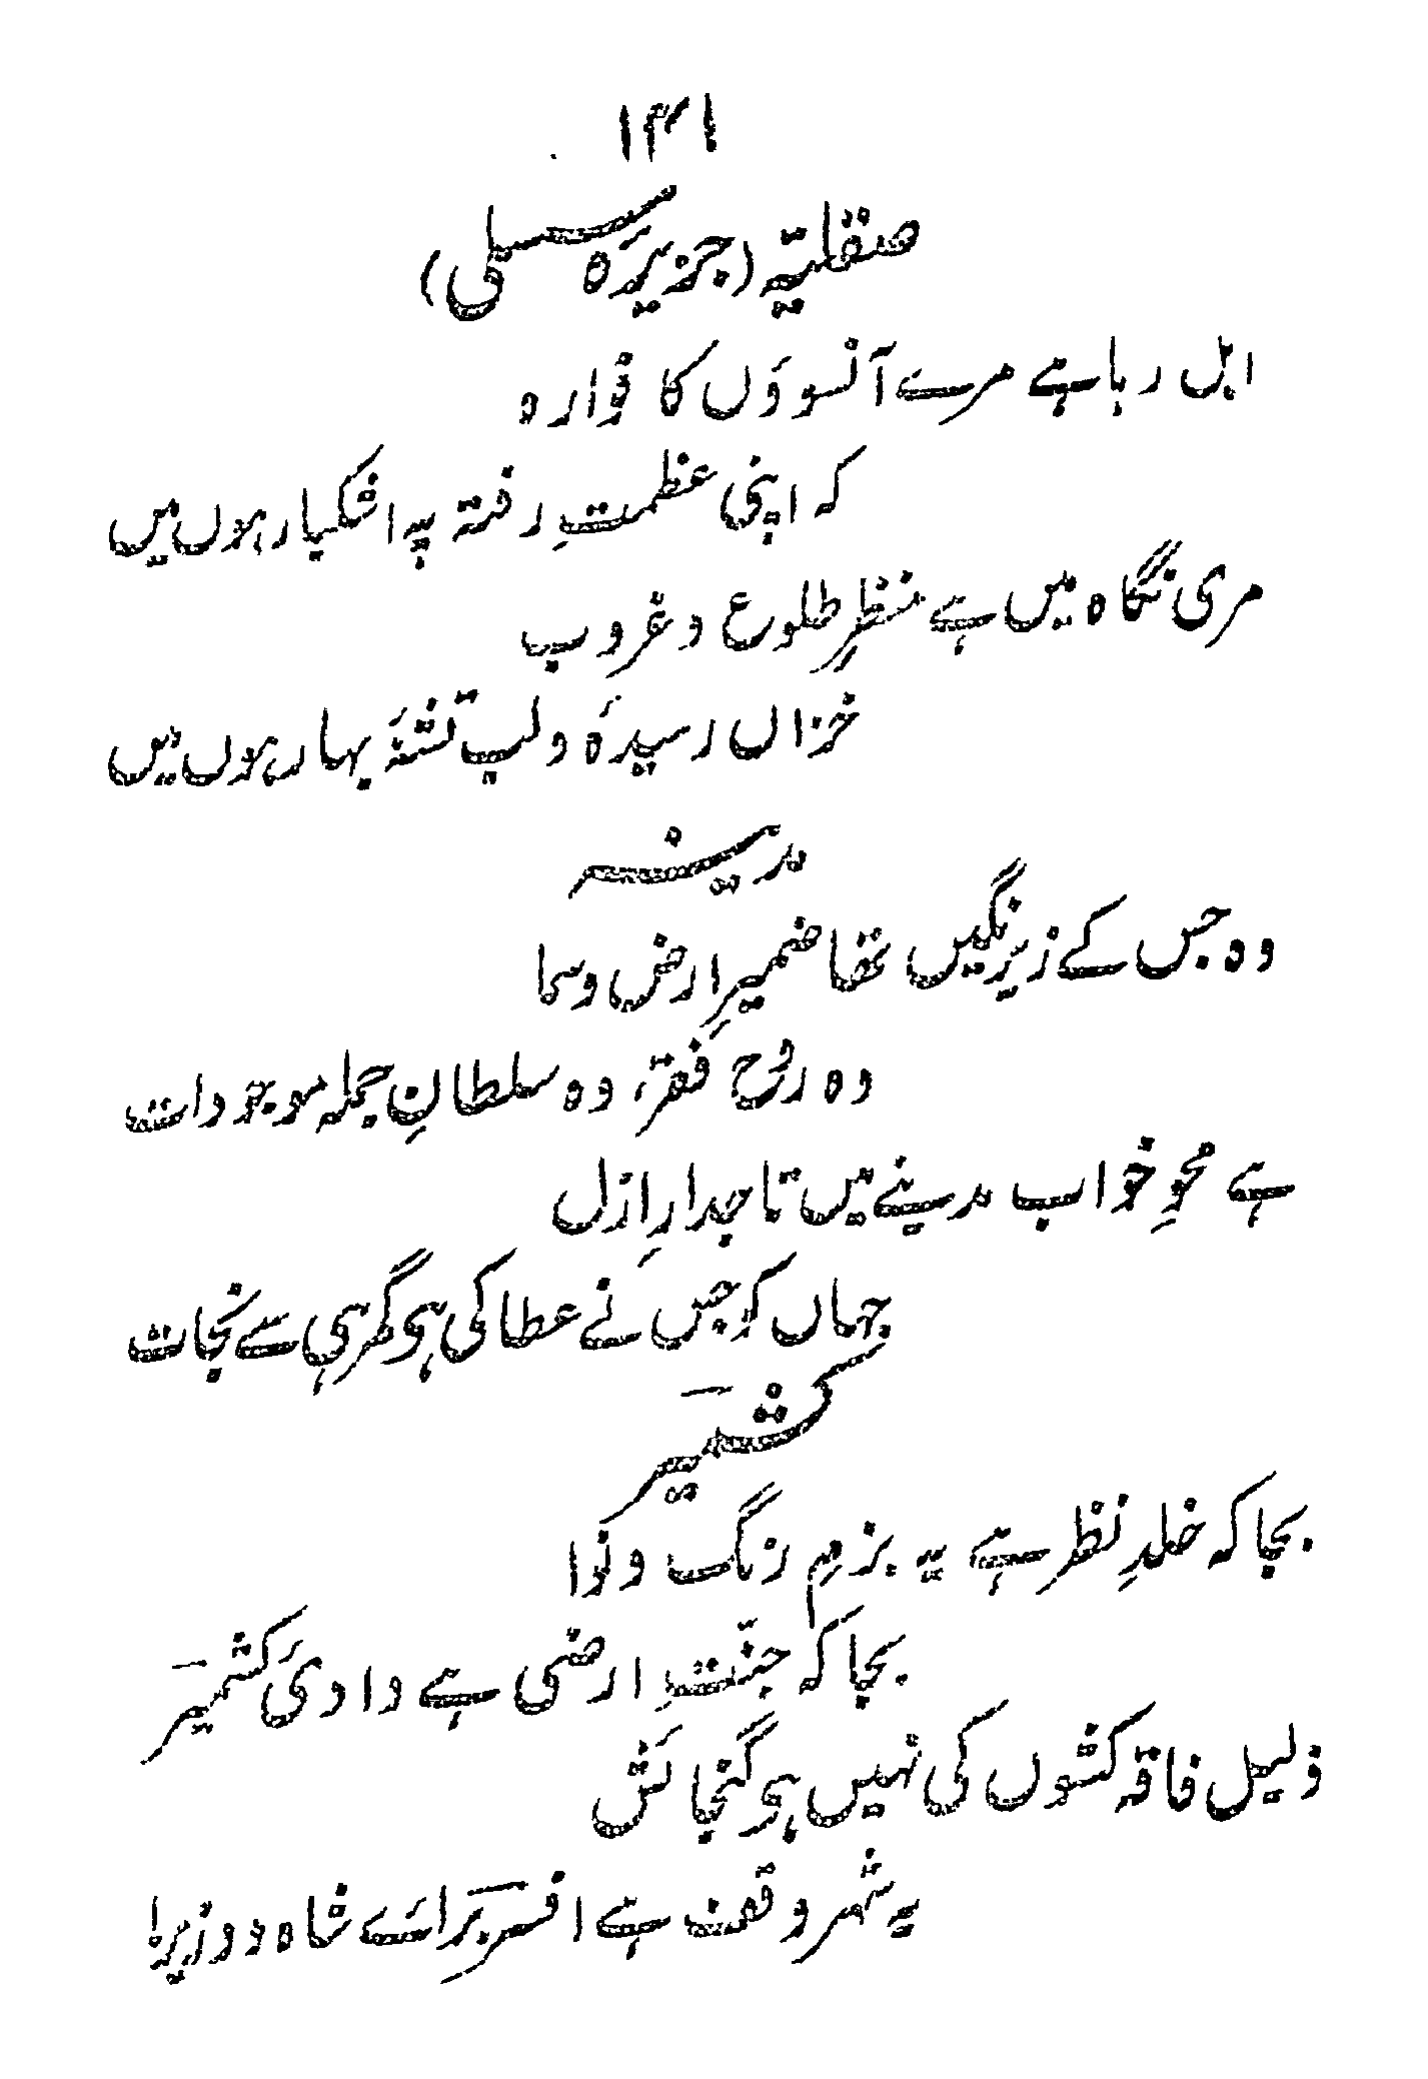 ۱۴۱
صقلیہ (جزیرۂ سسلی)
ابل رہا ہے مرے آنسوؤں کا فوارہ
کہ اپنی عظمتِ رفتہ پہ اشکبار ہوں میں
مری نگاہ میں ہے منظرِ طلوع و غروب
خزاں رسیدہ و لب تشنۂ بہار ہوں میں
مدینہ
وہ جس کے زیرِ نگیں تھا ضمیرِ ارض و سما
وہ روحِ فقر، وہ سلطانِ جملہ موجودات
ہے محوِ خواب مدینے میں تاجدارِ ازل
جہاں کو جس نے عطا کی ہو گمرہی سے نجات
کشمیر
بجا کہ خلدِ نظر ہے یہ بزمِ رنگ و نوا
بجا کہ جنّتِ ارضی ہے وادیٔ کشمیر
ذلیل فاقہ کشوں کی نہیں ہو گنجائش
یہ شہر وقف ہے افسر برائے شاہ و وزیر!